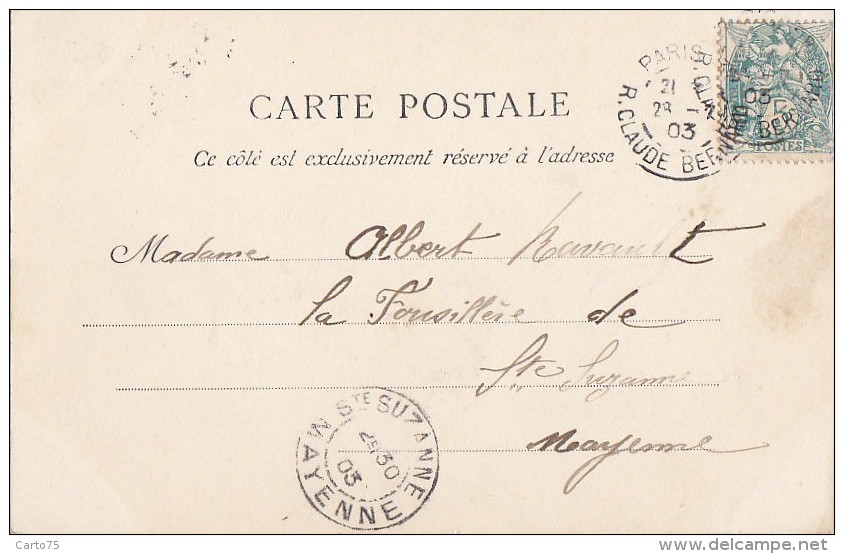 PARIS
R. CLAUDE BERNARD
21
28 - 1
03
POSTES
CARTE POSTALE
Ce côté est exclusivement réservé à l'adresse
Madame Albert Ravault
la Fousillère de
Ste Suzanne
Mayenne
STE SUZANNE
30
03
MAYENNE
Carto75
www.delcampe.net